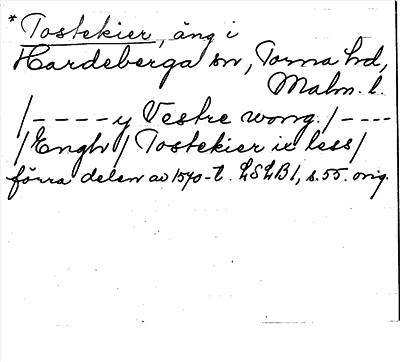 * Tostekier, äng i
Hardeberga sn, Torna hd,
Malm. l.
/ - - - - y Vestre wong. / - - - -
/ Engh / Tostekier ix less /
förra delen av 1570-t. LSLB 1, s. 55. orig.